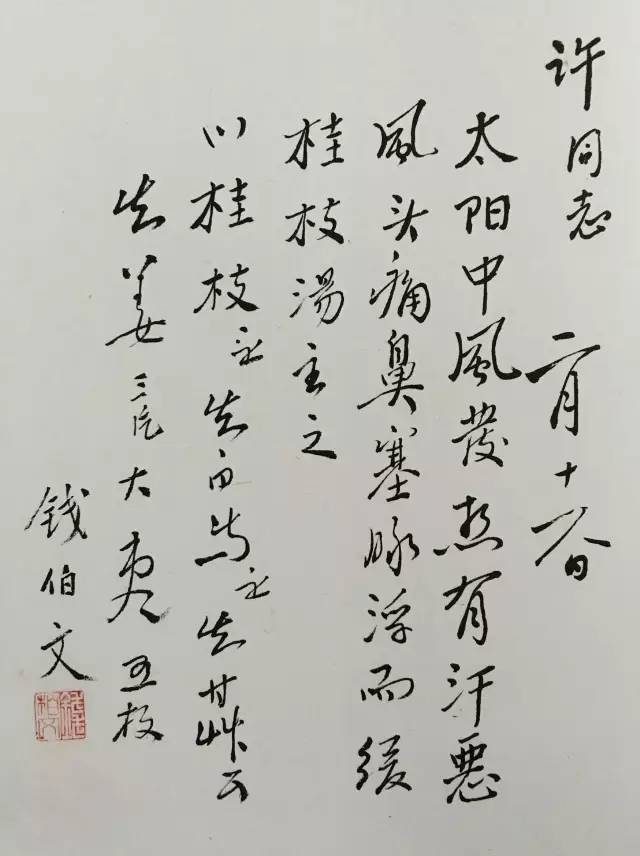 许同志 二月十六日
太阳中風發热有汗恶
風头痛鼻塞脉浮而缓
桂枝湯主之
川桂枝 生白芍 生甘艸
生姜三片大枣五枚
钱伯文